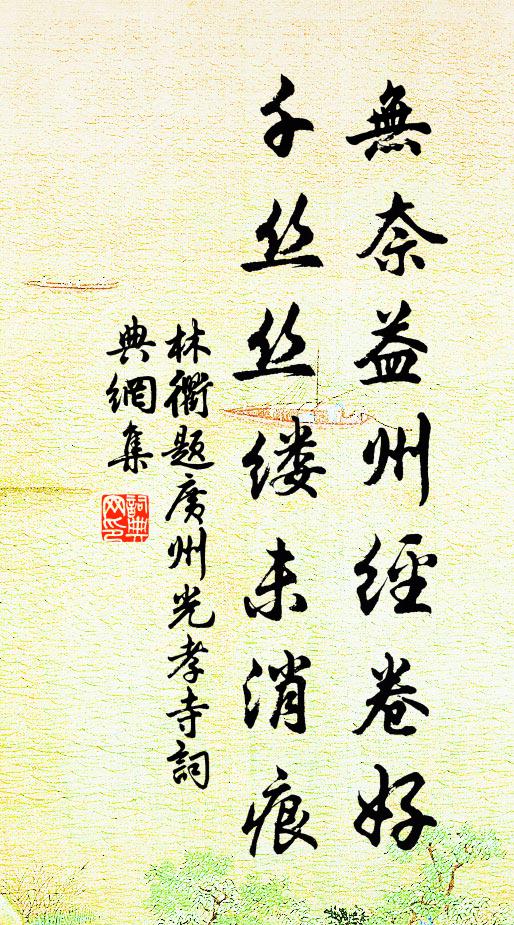 無奈益州經卷好
千丝丝缕未消痕
林衢题廣州光孝寺詞
典網集
詞典
网印